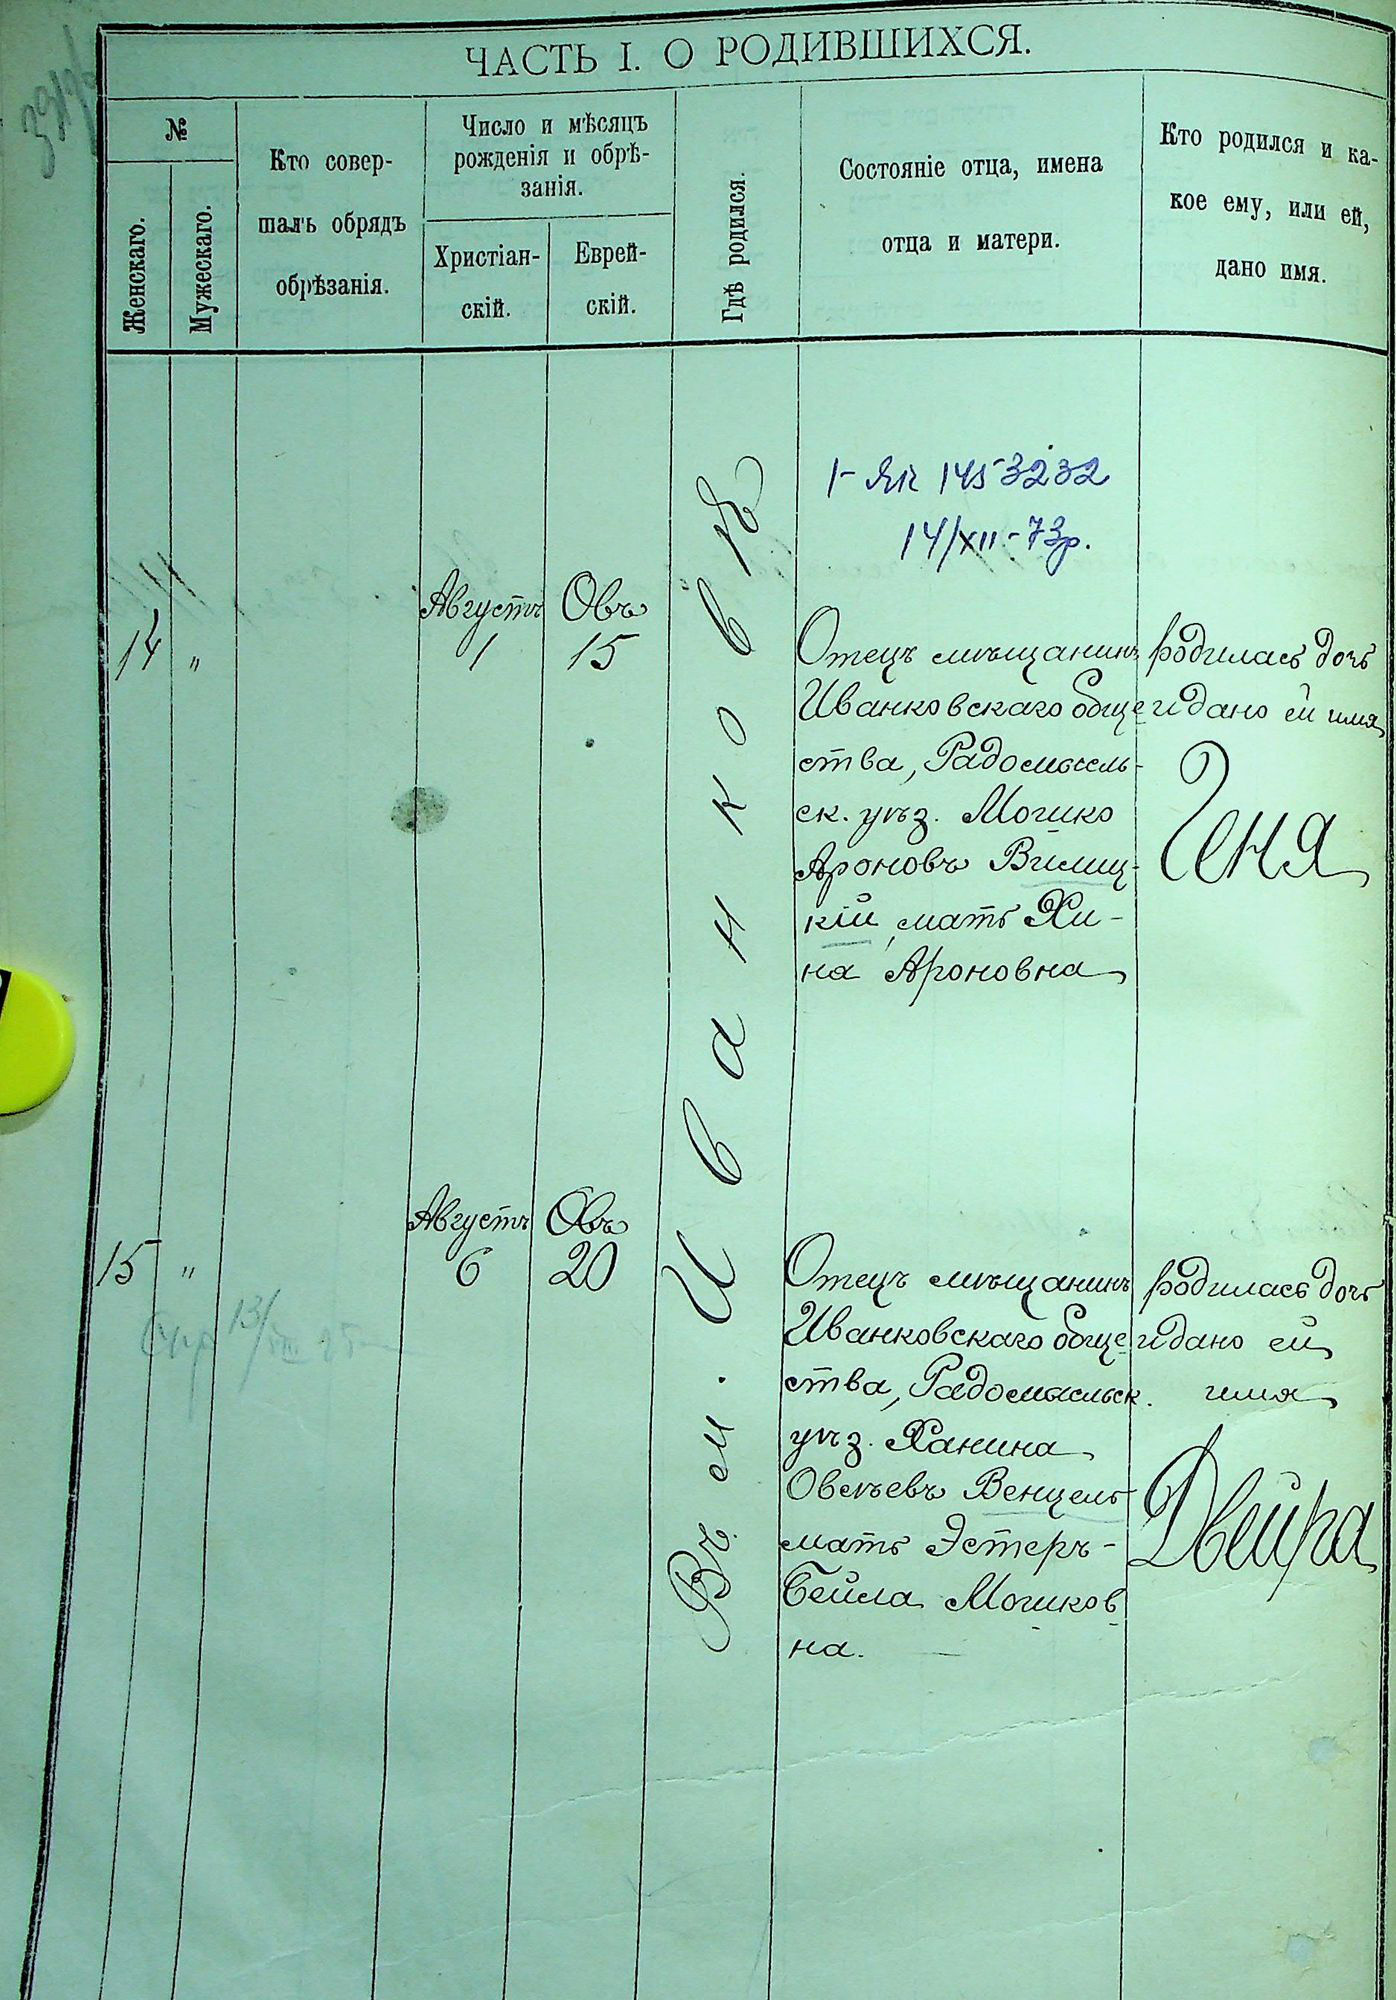 ЧАСТЬ I. О РОДИВШИХСЯ.
№
Женскаго.
Мужескаго.
Кто совер-
шалъ обрядъ
обрѣзанія.
Число и мѣсяцъ
рожденія и обрѣ-
занія.
Христіан-
скій.
Еврей-
скій.
Гдѣ родился.
Состояніе отца, имена
отца и матери.
Кто родился и ка-
кое ему, или ей,
дано имя.
Въ м. Иванковѣ
145 3232
14/XII-73р.
14 "
Августъ
1
Овъ
15
Отецъ мѣщанинъ
Иванковскаго обще-
ства, Радомысль-
ск. уѣз. Мошко
Ароновъ Вилиц-
кій, мать Хи-
на Ароновна
родилась дочь
и дано ей имя
Геня
15 "
Августъ
6
Овъ
20
Отецъ мѣщанинъ
Иванковскаго обще-
ства, Радомысльск.
уѣз. Ханина
Овсѣевъ Венцель
мать Эстеръ-
Бейла Мошков
на.
родилась дочь
и дано ей
имя
Двейра